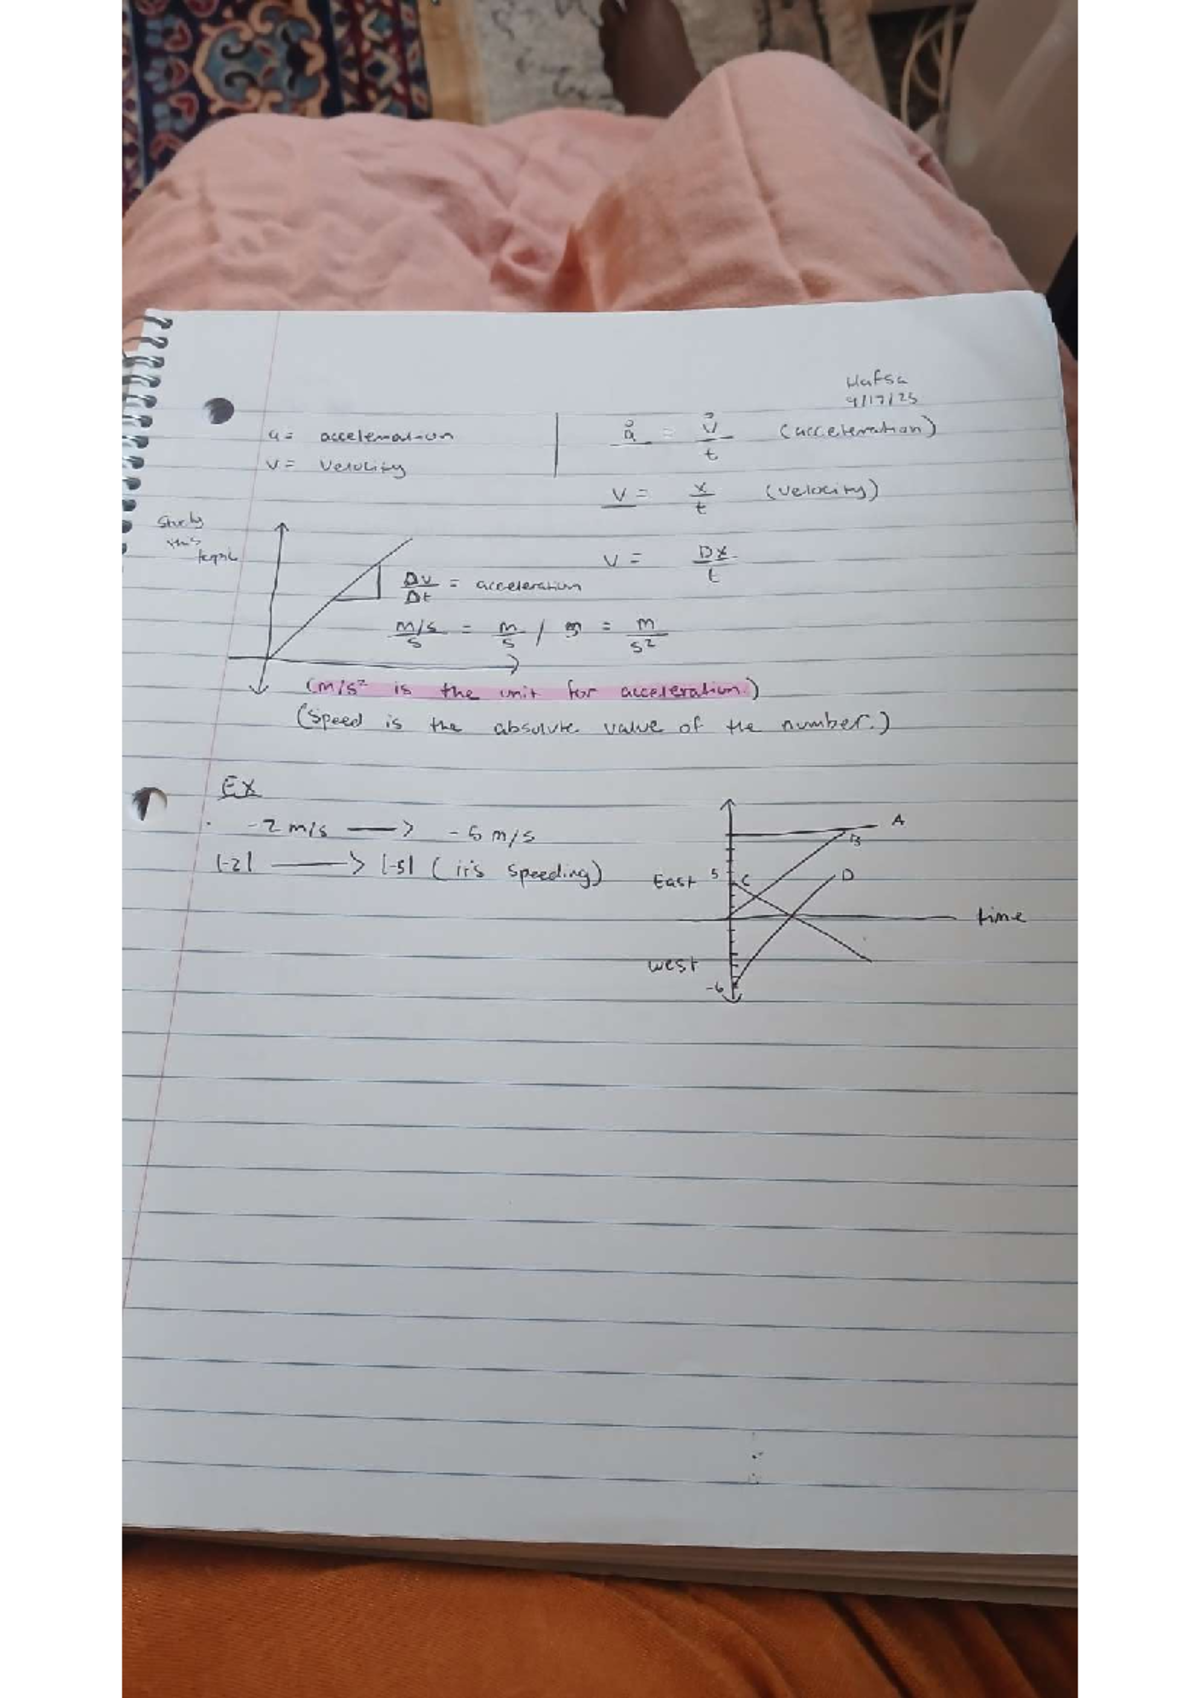 Hafsa
9/17/25
a = acceleration
v = velocity
a⃗ = v⃗/t (acceleration)
v = x/t (velocity)
v = Dx/t
Study
this
topic
Δv/Δt = acceleration
m/s/s = m/s / s = m/s²
(m/s² is the unit for acceleration.)
(Speed is the absolute value of the number.)
EX
-2 m/s → -5 m/s
|-2| → |-5| (it's speeding)
A
B
East 5 C
D
time
West
-6